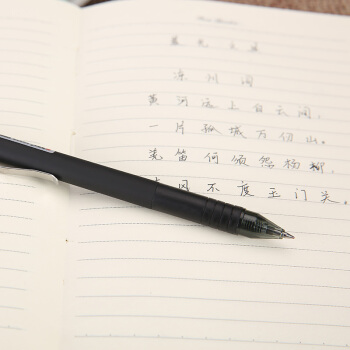 晨光文具
凉州词
黄河远上白云间,
一片孤城万仞山。
羌笛何须怨杨柳,
风不度玉门关。